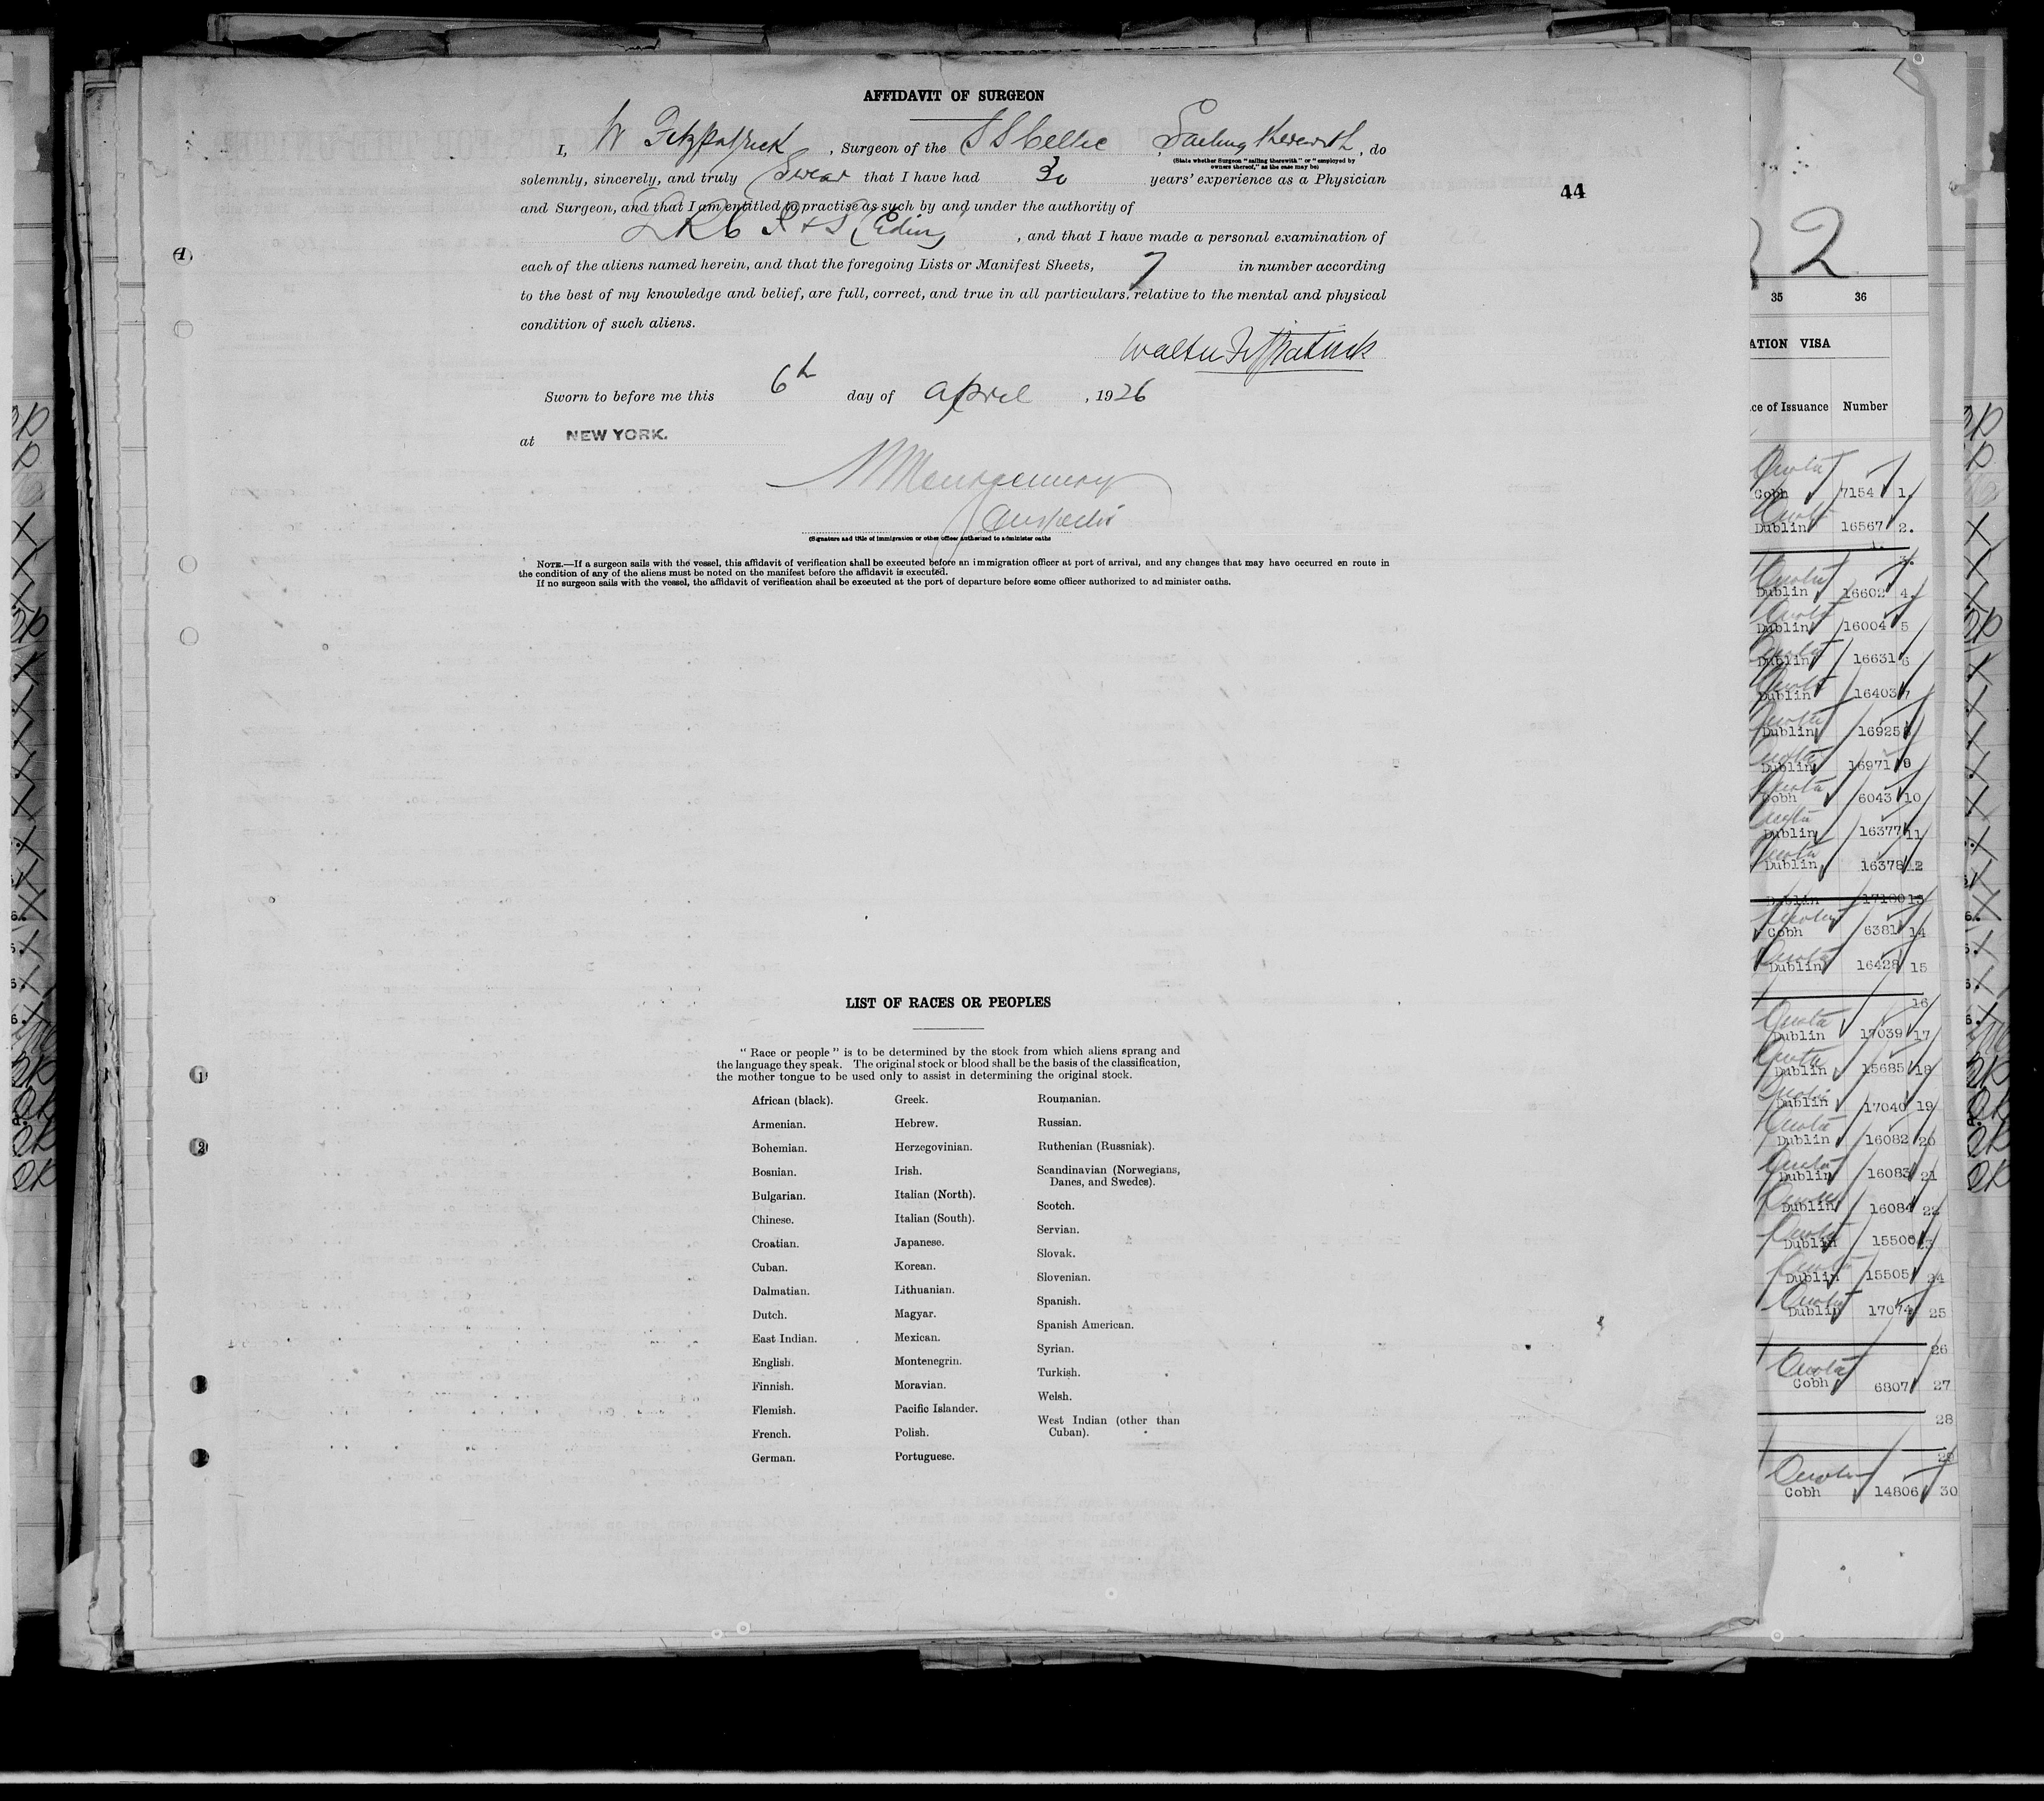 AFFIDAVIT OF SURGEON
I, W Fitzpatrick, Surgeon of the SS Celtic, Sailing therewith, do
(State whether Surgeon "sailing therewith" or "employed by
owners thereof," as the case may be)
solemnly, sincerely, and truly Swear that I have had 30 years' experience as a Physician
44
and Surgeon, and that I am entitled to practise as such by and under the authority of
LRC P + S (Edin), and that I have made a personal examination of
each of the aliens named herein, and that the foregoing Lists or Manifest Sheets, 7 in number according
to the best of my knowledge and belief, are full, correct, and true in all particulars, relative to the mental and physical
condition of such aliens.
Walter Fitzpatrick
Sworn to before me this 6th day of April, 1926
at NEW YORK.
Montgomery
Inspector
(Signature and title of immigration or other officer authorized to administer oaths
NOTE.—If a surgeon sails with the vessel, this affidavit of verification shall be executed before an immigration officer at port of arrival, and any changes that may have occurred en route in
the condition of any of the aliens must be noted on the manifest before the affidavit is executed.
If no surgeon sails with the vessel, the affidavit of verification shall be executed at the port of departure before some officer authorized to administer oaths.
LIST OF RACES OR PEOPLES
"Race or people" is to be determined by the stock from which aliens sprang and
the language they speak. The original stock or blood shall be the basis of the classification,
the mother tongue to be used only to assist in determining the original stock.
African (black).
Armenian.
Bohemian.
Bosnian.
Bulgarian.
Chinese.
Croatian.
Cuban.
Dalmatian.
Dutch.
East Indian.
English.
Finnish.
Flemish.
French.
German.
Greek.
Hebrew.
Herzegovinian.
Irish.
Italian (North).
Italian (South).
Japanese.
Korean.
Lithuanian.
Magyar.
Mexican.
Montenegrin.
Moravian.
Pacific Islander.
Polish.
Portuguese.
Roumanian.
Russian.
Ruthenian (Russniak).
Scandinavian (Norwegians,
Danes, and Swedes).
Scotch.
Servian.
Slovak.
Slovenian.
Spanish.
Spanish American.
Syrian.
Turkish.
Welsh.
West Indian (other than
Cuban).
2
35 36
ATION VISA
ce of Issuance Number
Quota
Cobh 7154 1.
Quota
Dublin 16567 2.
3.
Quota
Dublin 16602 4.
Quota
Dublin 16004 5
Quota
Dublin 16631 6
Quota
Dublin 16403 7
Quota
Dublin 16925
Quota
Dublin 16971 9
Quota
Cobh 6043 10
Quota
Dublin 16377 11
Quota
Dublin 16378 12
Dublin 17180 13
Quota
Cobh 6381 14
Quota
Dublin 16428 15
16
Quota
Dublin 17039 17
Quota
Dublin 15685 18
Quota
Dublin 17040 19
Quota
Dublin 16082 20
Quota
Dublin 16083 21
Quota
Dublin 16084 22
Quota
Dublin 15506
Quota
Dublin 15505 24
Quota
Dublin 17074 25
26
Quota
Cobh 6807 27
28
29
Quota
Cobh 14806 30